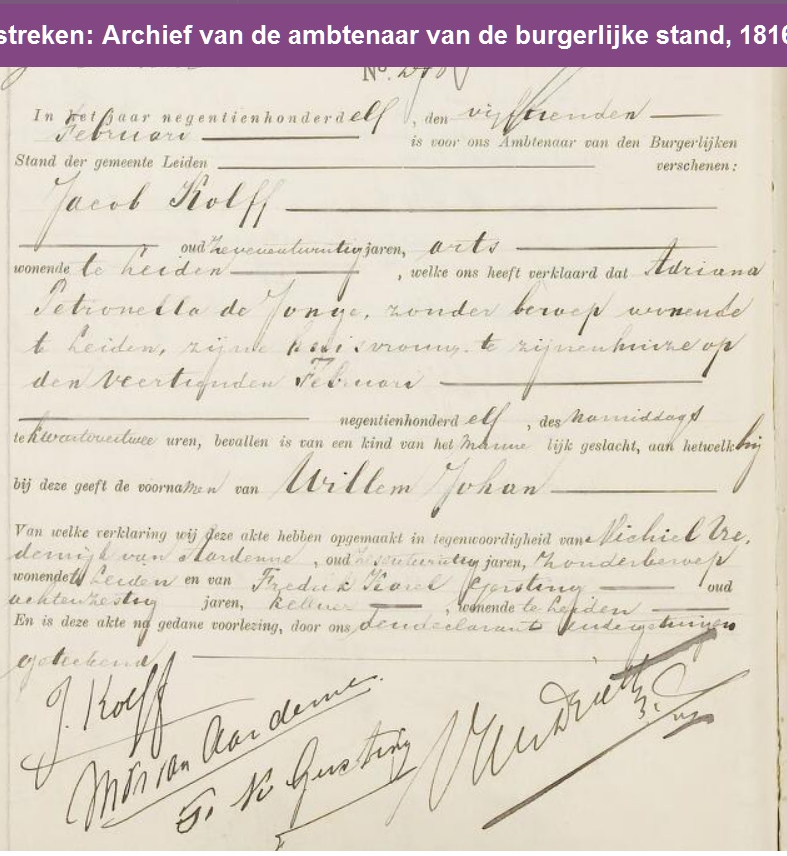 streken: Archief van de ambtenaar van de burgerlijke stand, 1816
No.
In het jaar negentienhonderd elf, den vijftienden
Februari is voor ons Ambtenaar van den Burgerlijken
Stand der gemeente Leiden verschenen:
Jacob Kolff
oud zevenentwintig jaren, arts
wonende te Leiden, welke ons heeft verklaard dat Adriana
Petronella de Jonge, zonder beroep wonende
te Leiden, zijne huisvrouw te zijnenhuize op
den veertienden Februari
negentienhonderd elf, des namiddags
te kwartovertwee uren, bevallen is van een kind van het manne lijk geslacht, aan hetwelk hij
bij deze geeft de voornamen van Willem Johan
Van welke verklaring wij deze akte hebben opgemaakt in tegenwoordigheid van Michiel Vre,
derijk van Aardenne, oud jaren, zonder beroep
wonende te Leiden en van Fredrik Karel Gersting oud
achtenzestig jaren, kellner, wonende te Leiden
En is deze akte na gedane voorlezing, door ons den declarant en de getuigen
geteekend
J. Kolff
van Aardenne.
F. K. Gersting